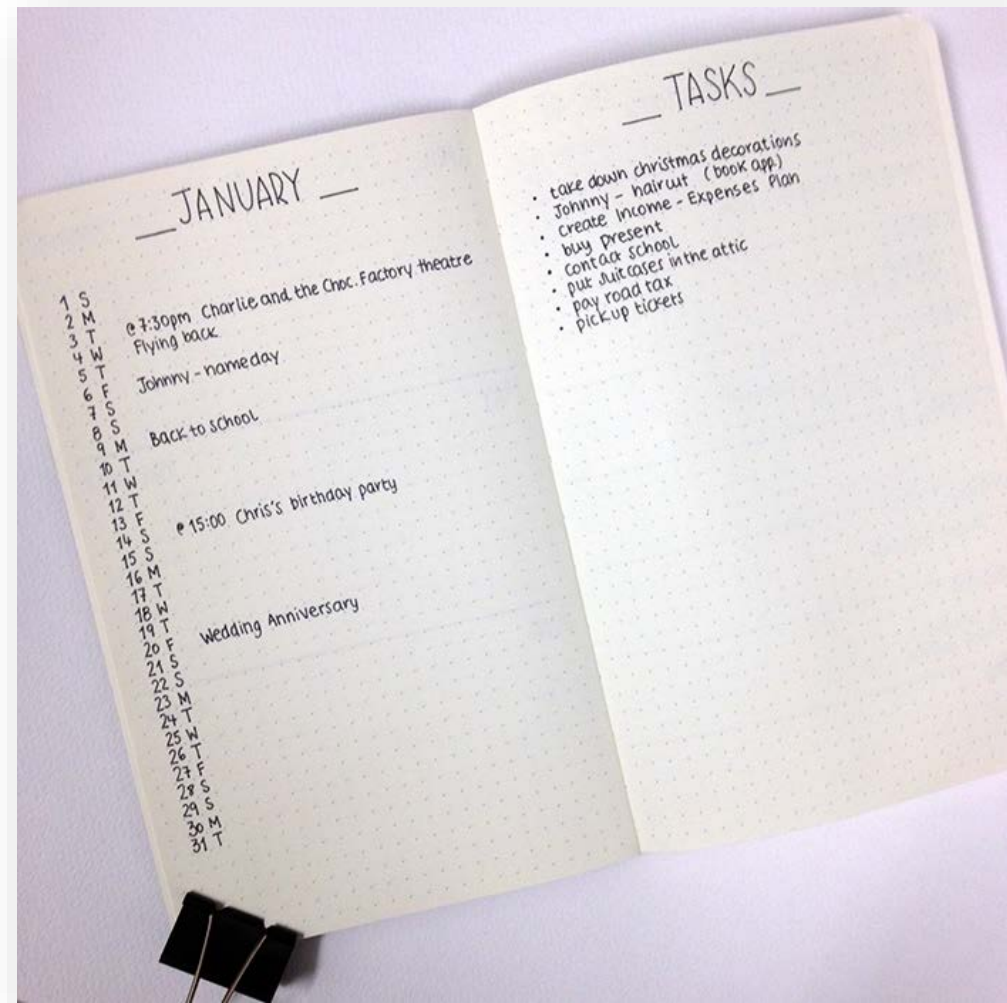 __ JANUARY __
1 S
2 M
3 T @ 7:30pm Charlie and the Choc. Factory theatre
4 W Flying back
5 T
6 F Johnny - nameday
7 S
8 S
9 M Back to school
10 T
11 W
12 T
13 F
14 S @ 15:00 Chris's birthday party
15 S
16 M
17 T
18 W
19 T
20 F Wedding Anniversary
21 S
22 S
23 M
24 T
25 W
26 T
27 F
28 S
29 S
30 M
31 T
__ TASKS __
• take down christmas decorations
• Johnny - haircut (book app.)
• create Income - Expenses Plan
• buy present
• contact school
• put suitcases in the attic
• pay road tax
• pick up tickets